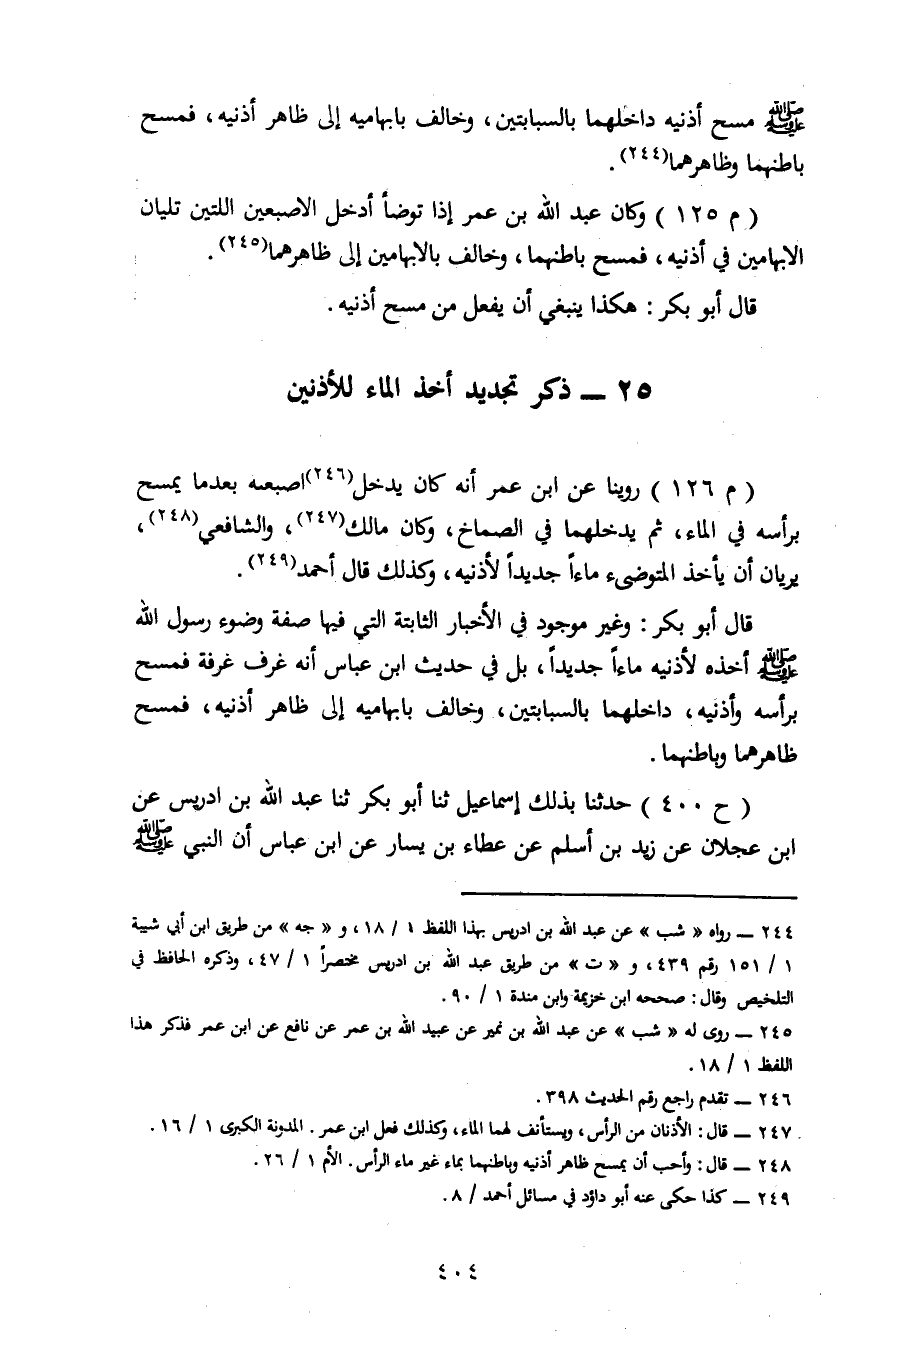 ﷺ مسح أذنيه داخلهما بالسبابتين، وخالف بابهاميه إلى ظاهر أذنيه، فمسح
باطنهما وظاهرهما(٢٤٤).
( م ١٢٥ ) وكان عبد الله بن عمر إذا توضأ أدخل الاصبعين اللتين تليان
الابهامين في أذنيه، فمسح باطنهما، وخالف بالابهامين إلى ظاهرهما(٢٤٥).
قال أبو بكر : هكذا ينبغي أن يفعل من مسح أذنيه.
٢٥ ــ ذكر تجديد أخذ الماء للأذنين
( م ١٢٦ ) روينا عن ابن عمر أنه كان يدخل(٢٤٦) اصبعه بعدما يمسح
برأسه في الماء، ثم يدخلهما في الصماخ، وكان مالك(٢٤٧)، والشافعي(٢٤٨)،
يريان أن يأخذ المتوضىء ماءاً جديداً لأذنيه، وكذلك قال أحمد(٢٤٩).
قال أبو بكر : وغير موجود في الأخبار الثابتة التي فيها صفة وضوء رسول الله
ﷺ أخذه لأذنيه ماءاً جديداً، بل في حديث ابن عباس أنه غرف غرفة فمسح
برأسه وأذنيه، داخلهما بالسبابتين، وخالف بابهاميه إلى ظاهر أذنيه، فمسح
ظاهرهما وباطنهما.
( ح ٤٠٠ ) حدثنا بذلك إسماعيل ثنا أبو بكر ثنا عبد الله بن ادريس عن
ابن عجلان عن زيد بن أسلم عن عطاء بن يسار عن ابن عباس أن النبي ﷺ
٢٤٤ ــ رواه « شب » عن عبد الله بن ادريس بهذا اللفظ ١ / ١٨، و « جه » من طريق ابن أبي شيبة
١ / ١٥١ رقم ٤٣٩، و « ت » من طريق عبد الله بن ادريس مختصراً ١ / ٤٧، وذكره الحافظ في
التلخيص وقال : صححه ابن خزيمة وابن مندة ١ / ٩٠.
٢٤٥ ــ روى له « شب » عن عبد الله بن نمير عن عبيد الله بن عمر عن نافع عن ابن عمر فذكر هذا
اللفظ ١ / ١٨.
٢٤٦ ــ تقدم راجع رقم الحديث ٣٩٨.
٢٤٧ ــ قال : الأذنان من الرأس، ويستأنف لهما الماء، وكذلك فعل ابن عمر. المدونة الكبرى ١ / ١٦.
٢٤٨ ــ قال : وأحب أن يمسح ظاهر أذنيه وباطنهما بماء غير ماء الرأس. الأم ١ / ٢٦.
٢٤٩ ــ كذا حكى عنه أبو داؤد في مسائل أحمد / ٨.
٤٠٤